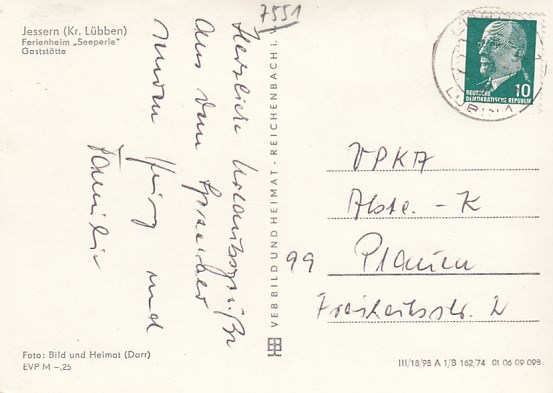 Jessern (Kr. Lübben)
Ferienheim „Seeperle"
Gaststätte
7551
Herzliche Urlaubsgrüße
aus dem
und
Familie
VEB BILD UND HEIMAT · REICHENBACH i.
10
DEUTSCHE
DEMOKRATISCHE REPUBLIK
VPKA
Abte. - K
99 Plauen
Freiheitsstr. 2
Foto: Bild und Heimat (Darr)
EVP M –,25
III/18/98 A 1/B 162/74 01 06 09 098